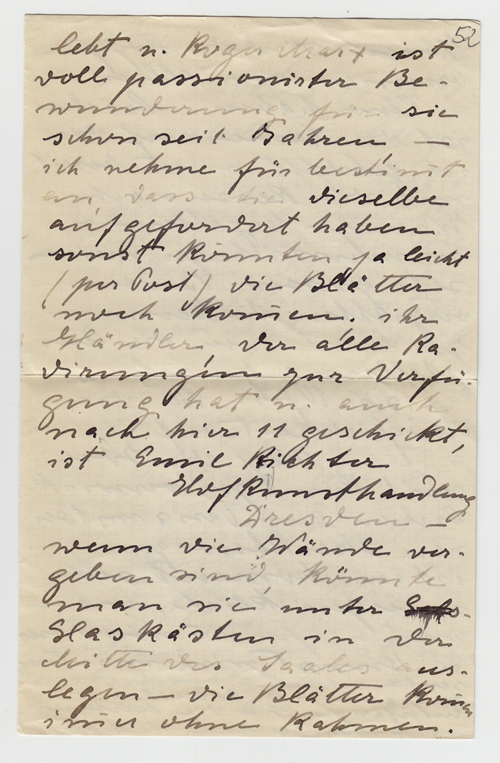 52
lebt u. Roger Marx ist
voll passionirter Be-
wunderung für sie
schon seit Jahren —
ich nehme für bestim̄t
an, dass Sie dieselbe
aufgefordert haben
sonst könnten ja leicht
(per Post) die Blätter
noch kom̄en. ihr
Händler der alle Ra-
dirungen zur Verfü-
gung hat u. auch
nach hier 11 geschickt,
ist Emil Richter
Hofkunsthandlung
Dresden —
wenn die Wände ver-
geben sind, könnte
man sie unter
Glaskästen in der
Mitte des Saales aus-
legen — die Blätter kom̄en
im̄er ohne Rahmen.